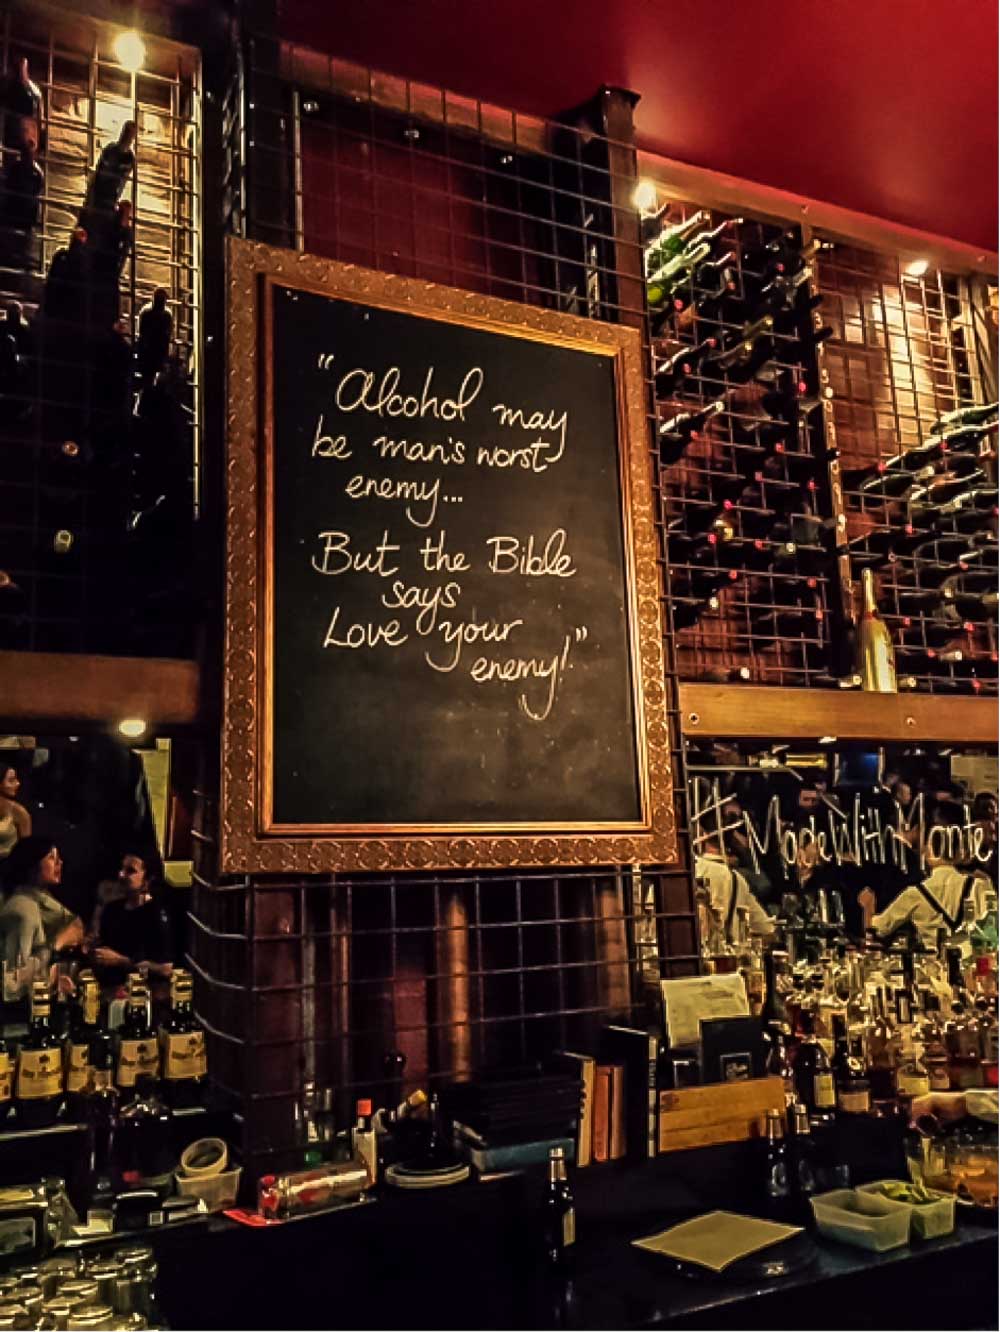 "Alcohol may
be man's worst
enemy...
But the Bible
says
Love your
enemy!"
#MadeWithMonte